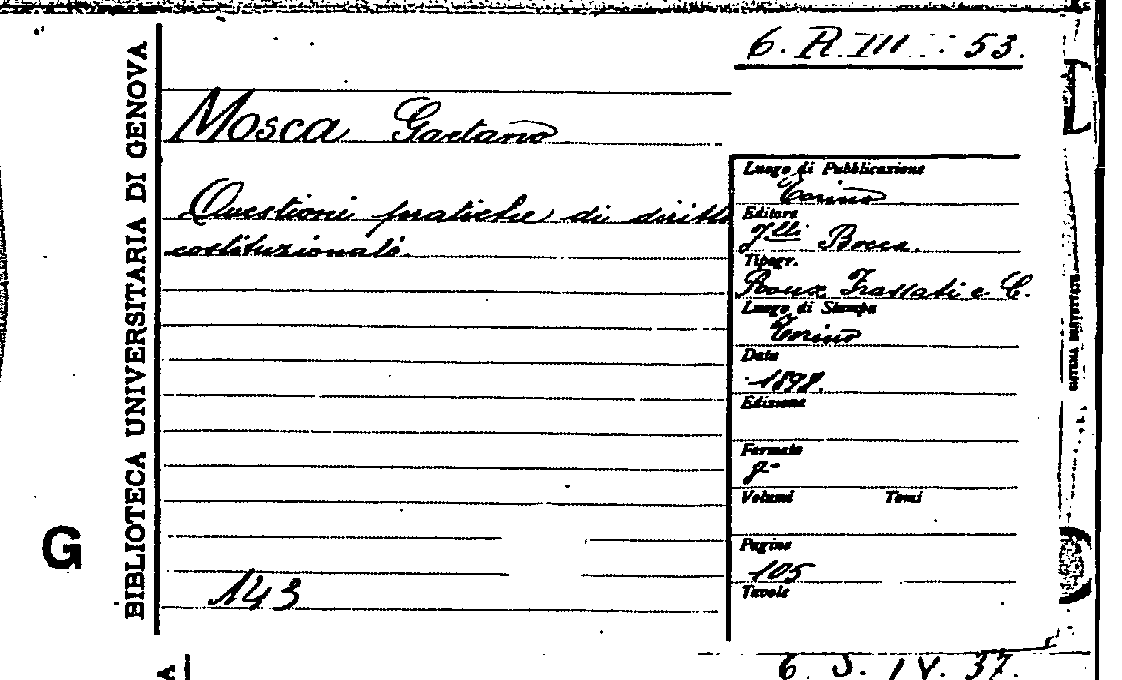 6. R. III. 53.
BIBLIOTECA UNIVERSITARIA DI GENOVA
Mosca Gaetano
Questioni pratiche di diritto
costituzionale.
143
G
Luogo di Pubblicazione
Torino
Editore
F.lli Bocca.
Tipogr.
Roux Frassati e C.
Luogo di Stampa
Torino
Data
1898.
Edizione
Formato
8°
Volumi Tomi
Pagine
105
Tavole
6 S. IV. 37.